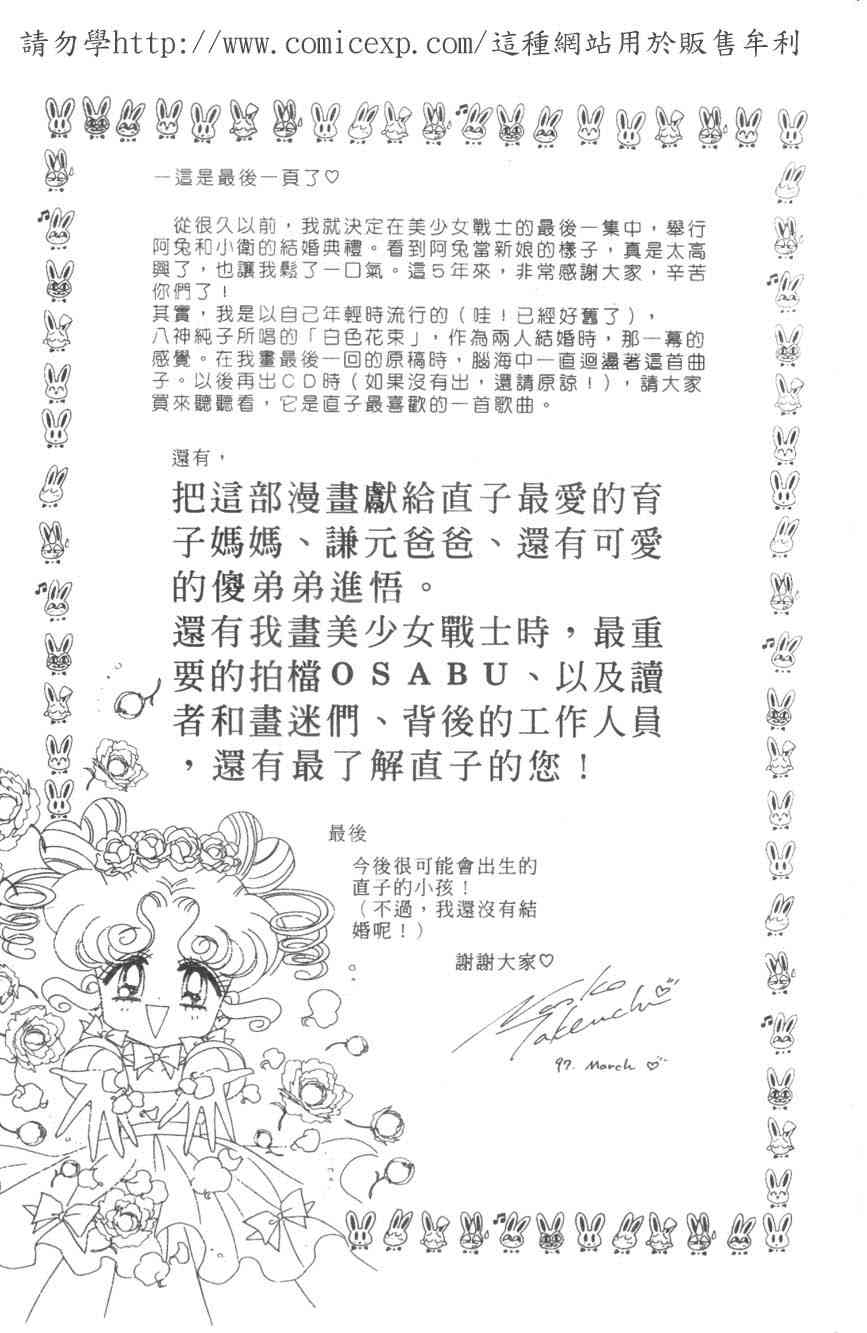 請勿學http://www.comicexp.com/這種網站用於販售牟利
－這是最後一頁了♡
從很久以前，我就決定在美少女戰士的最後一集中，舉行
阿兔和小衛的結婚典禮。看到阿兔當新娘的樣子，真是太高
興了，也讓我鬆了一口氣。這５年來，非常感謝大家，辛苦
你們了！
其實，我是以自己年輕時流行的（哇！已經好舊了），
八神純子所唱的「白色花束」，作為兩人結婚時，那一幕的
感覺。在我畫最後一回的原稿時，腦海中一直迴盪著這首曲
子。以後再出ＣＤ時（如果沒有出，還請原諒！），請大家
買來聽聽看，它是直子最喜歡的一首歌曲。
還有，
把這部漫畫獻給直子最愛的育
子媽媽、謙元爸爸、還有可愛
的傻弟弟進悟。
還有我畫美少女戰士時，最重
要的拍檔ＯＳＡＢＵ、以及讀
者和畫迷們、背後的工作人員
，還有最了解直子的您！
最後
今後很可能會出生的
直子的小孩！
（不過，我還沒有結
婚呢！）
謝謝大家♡
Naoko
Takeuchi ♡
97. March ♡